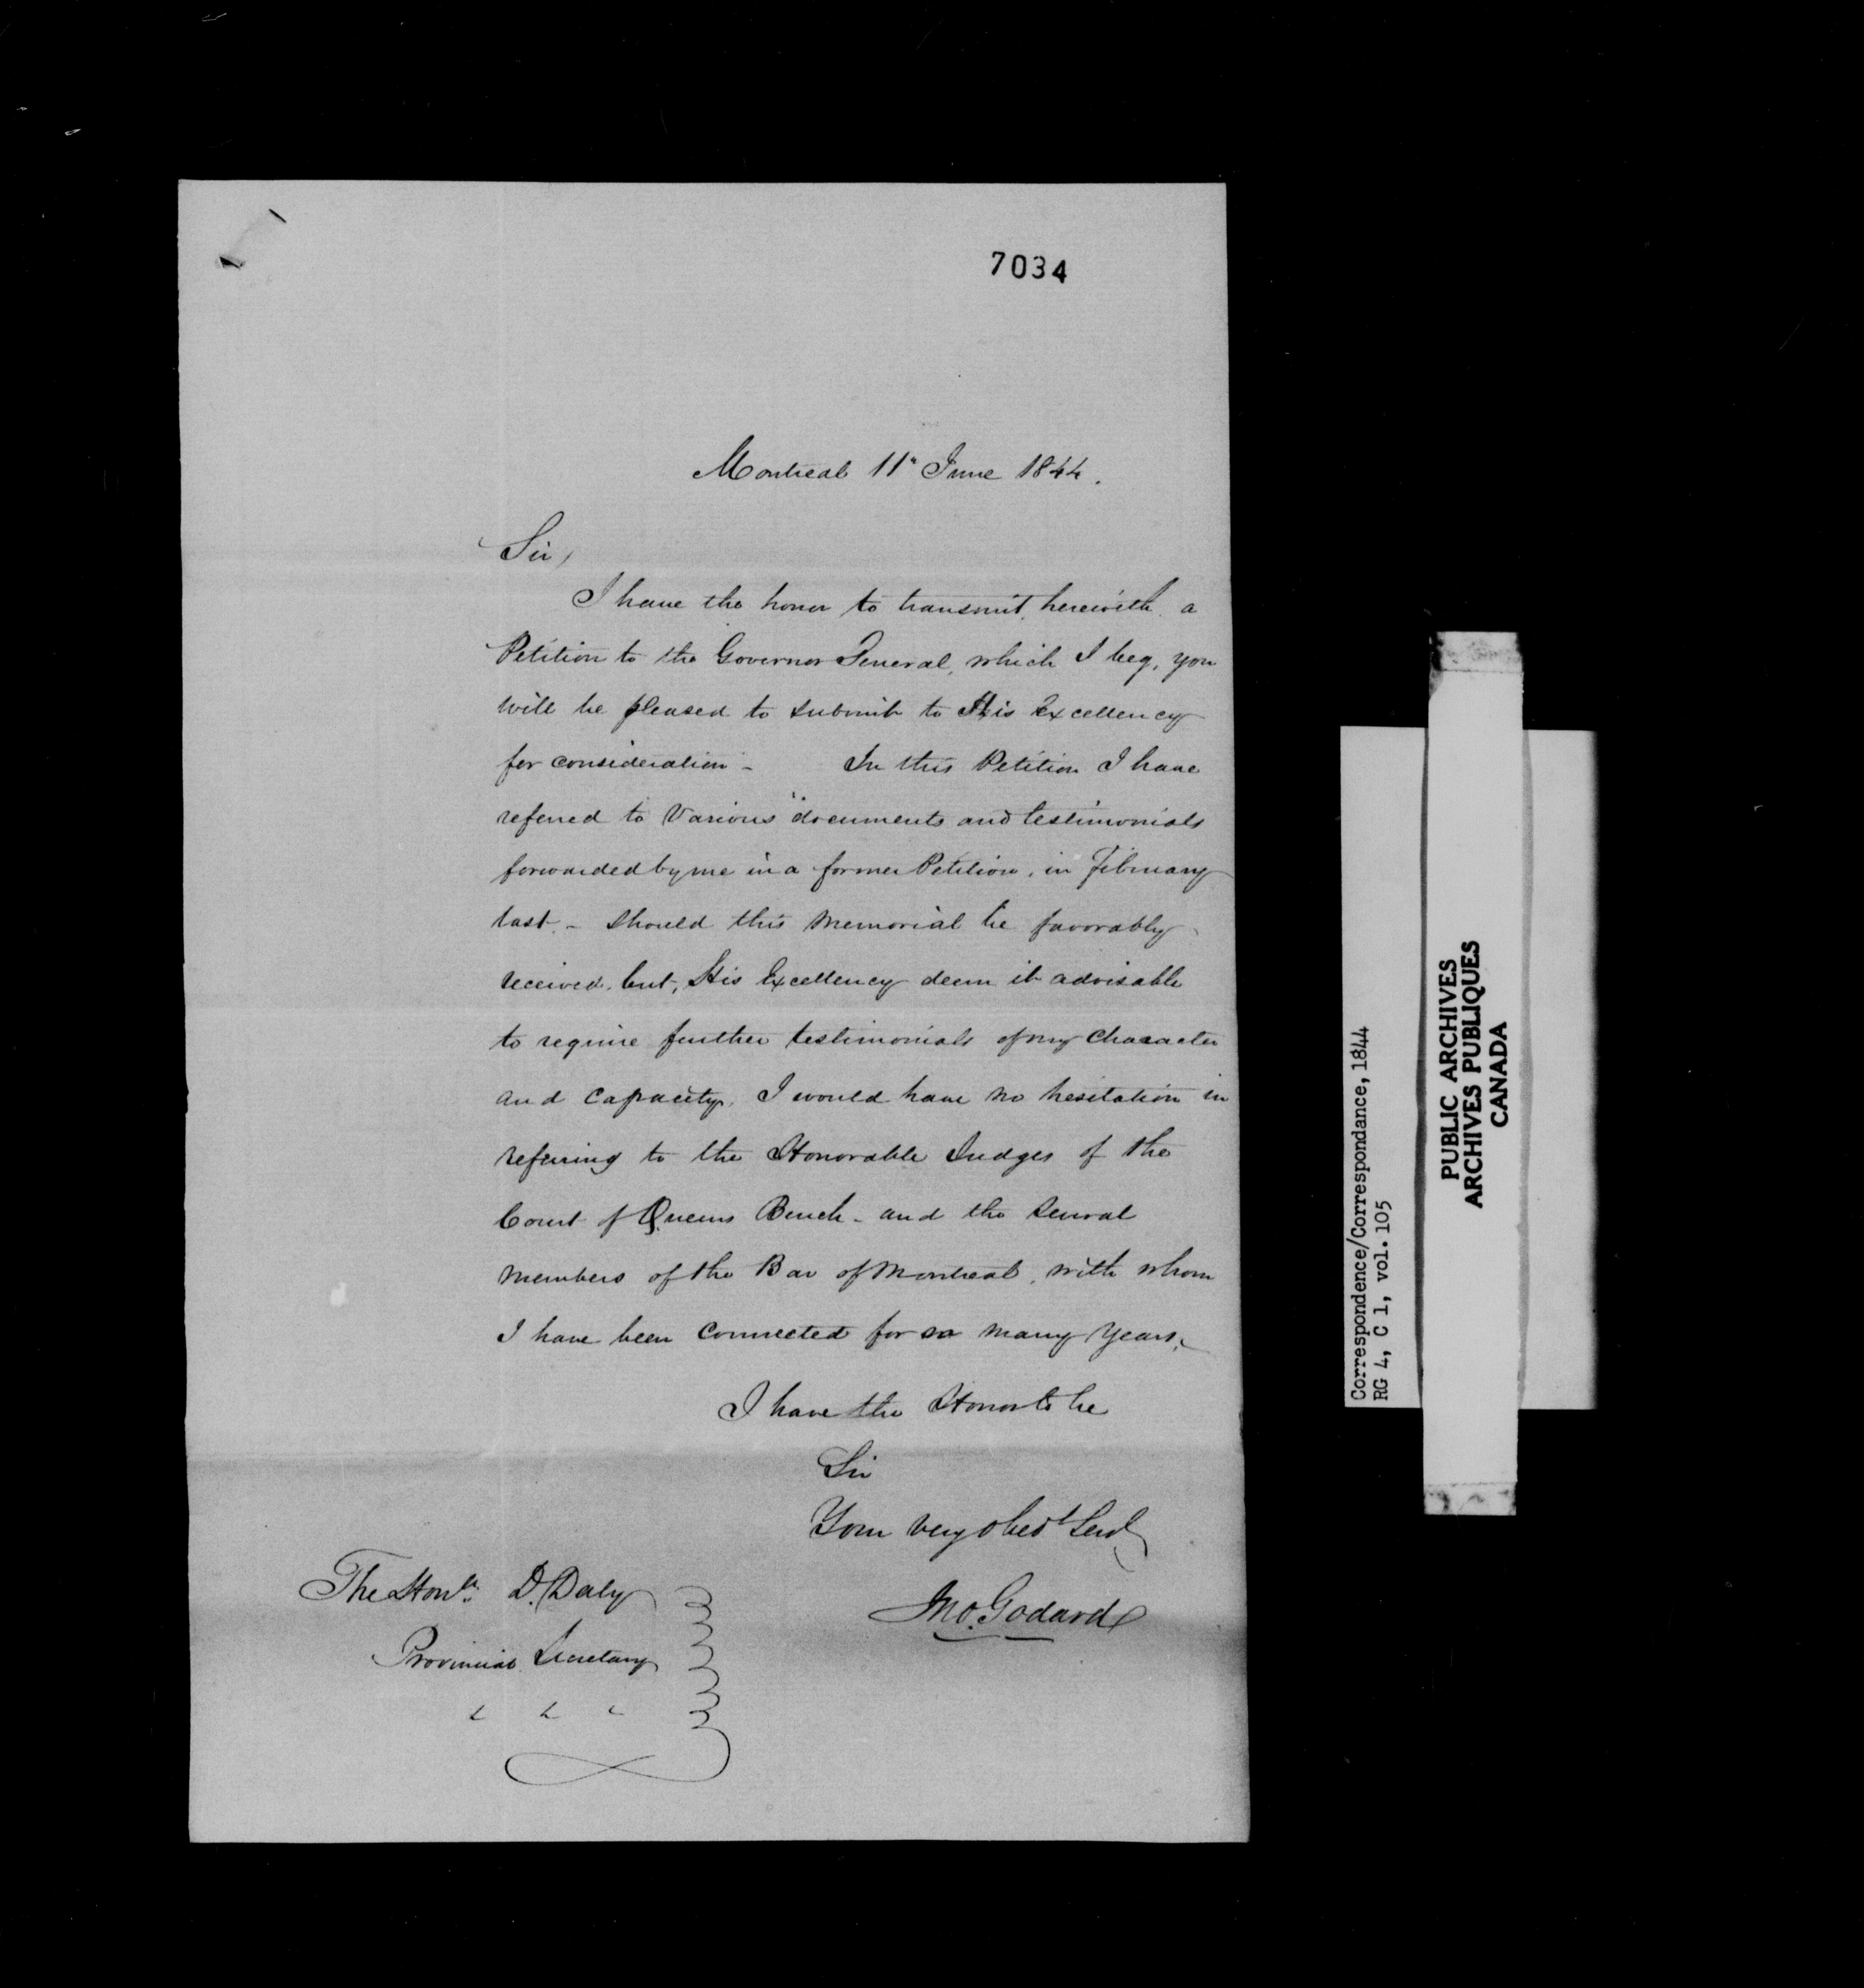 7034
Montreal 11" June 1844.
Sir,
I have the honor to transmit, herewith, a
Petition to the Governor General, which I beg, you
will be pleased to submit to His Excellency
for consideration - In this Petition I have
referred to various documents and testimonials
forwarded by me in a former Petition, in February
last. - Should this memorial be favorably
received, but, His Excellency deem it advisable
to require further testimonials of my Character
and Capacity, I would have no hesitation in
referring to the Honorable Judges of the
Court of Queens Bench - and the several
members of the Bar of Montreal, with whom
I have been connected for so many years,
I have the Honor to be
Sir
Your very obedt Servt
Jno. Godard
The Honle. D. Daly
Provincial Secretary
Correspondence/Correspondance, 1844
RG 4, C 1, vol. 105
PUBLIC ARCHIVES
ARCHIVES PUBLIQUES
CANADA